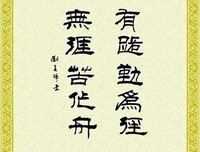 有路勤為徑
無涯苦作舟